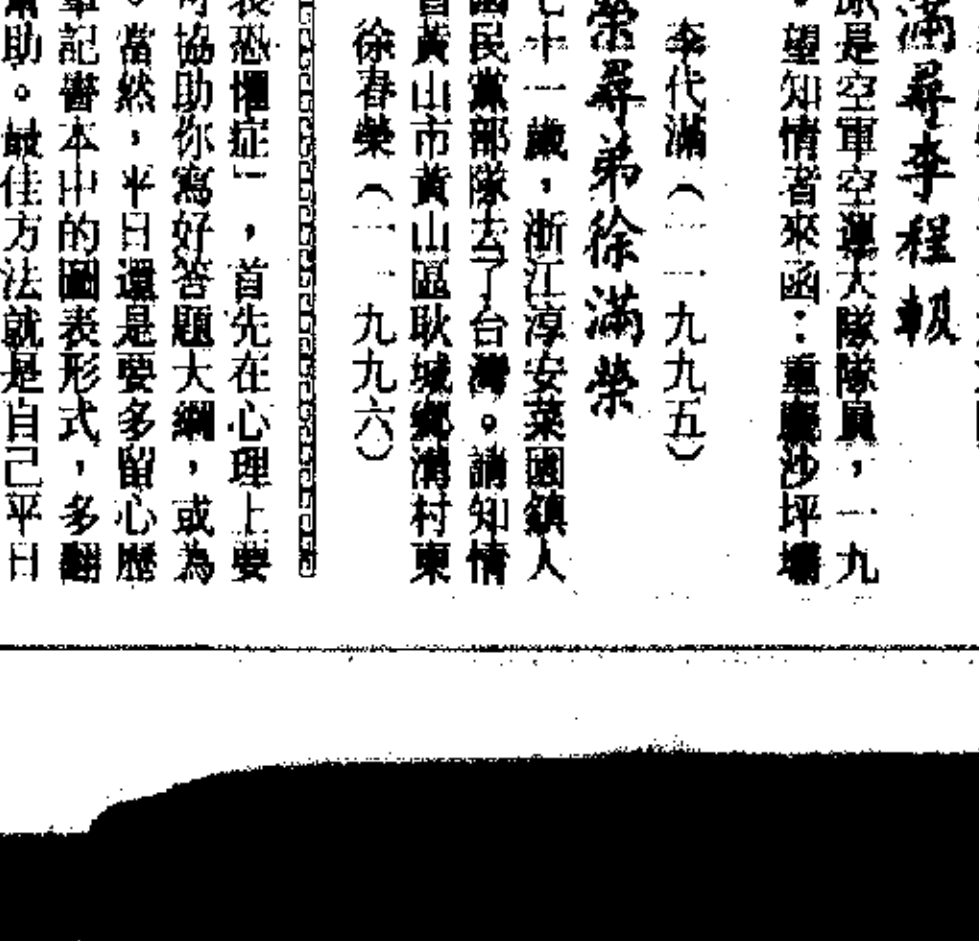 滿尋李程
原是空軍空運大隊隊員，一九
。望知情者來函：重慶沙坪壩
李代滿（一一九九五）
榮尋弟徐滿榮
七十一歲，浙江淳安菜園鎮人
國民黨部隊去了台灣。請知情
黃山市黃山區耿城鄉溝村東
徐春榮（一一九九六）
恐懼症」，首先在心理上要
可協助你寫好答題大綱，或為
。當然，平日還是要多留心歷
筆記書本中的圖表形式，多翻
幫助。最佳方法就是自己平日